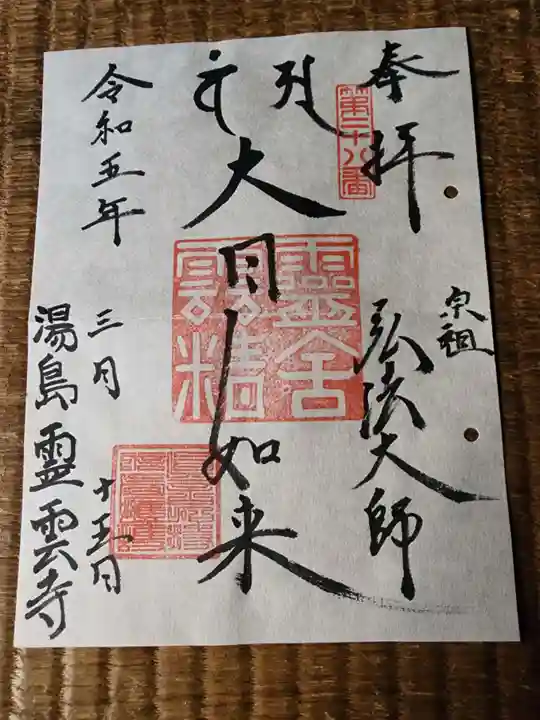 奉拝
第二十八番
宗祖
弘法大師
大日如来
令和五年
三月
十五日
湯島霊雲寺